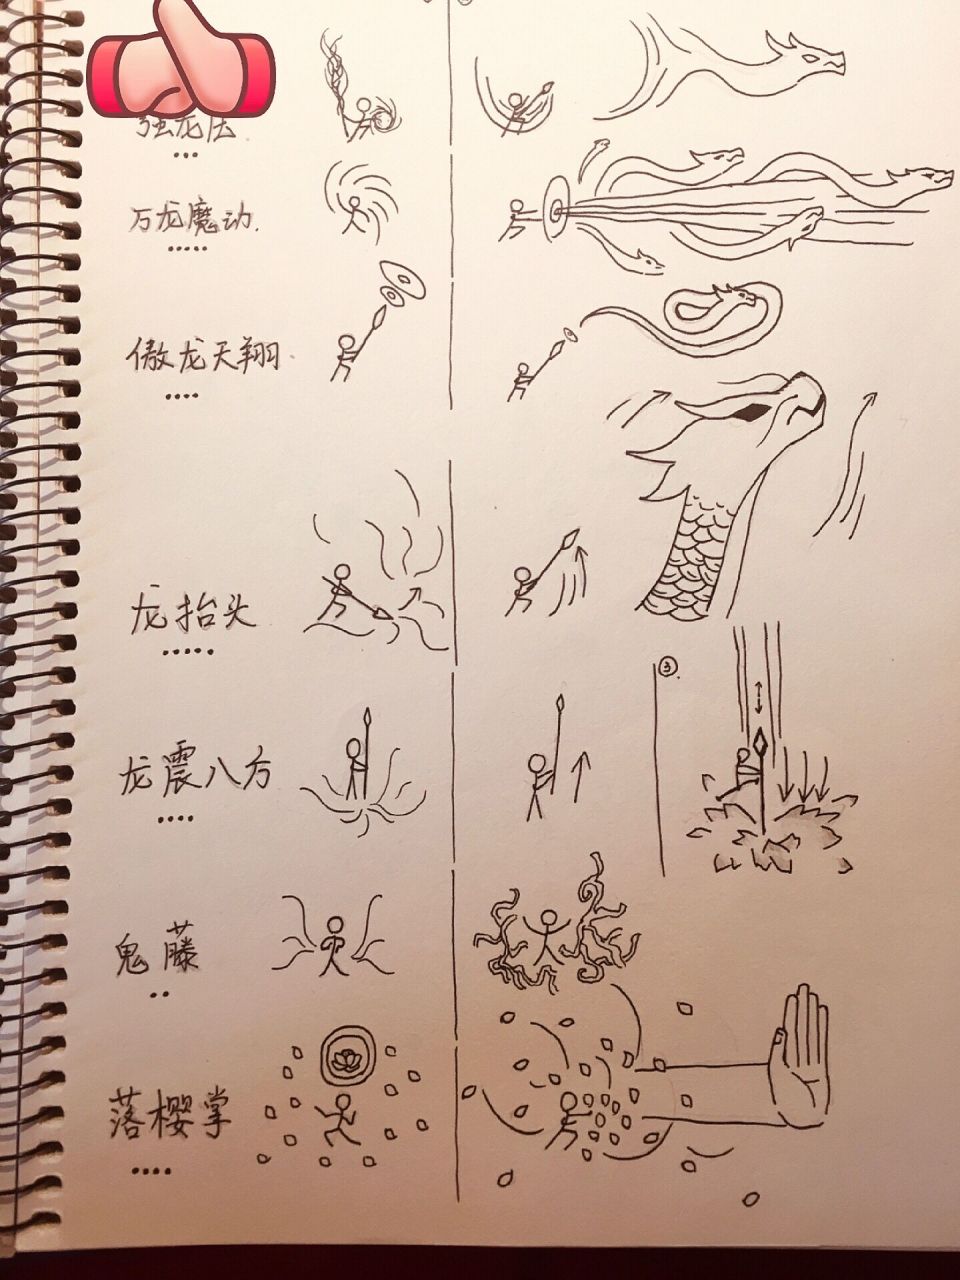 万龙魔动.
傲龙天翔.
龙抬头
③.
龙震八方
鬼藤
落樱掌